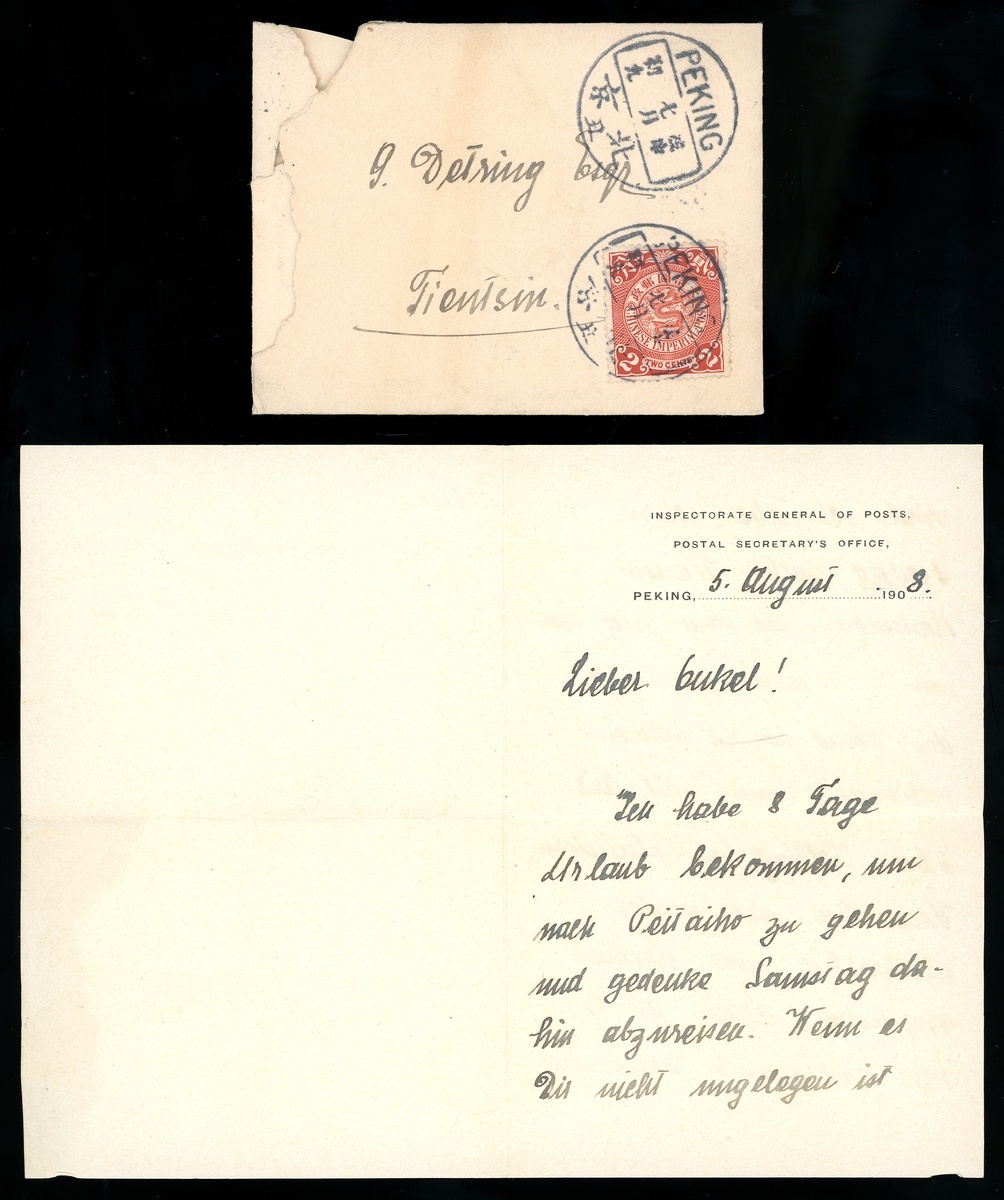 PEKING
北京
七月
初九
G. Detring Esqr
Tientsin.
PEKIN
CHINESE IMPERIAL POST
2
TWO CENTS
2
INSPECTORATE GENERAL OF POSTS,
POSTAL SECRETARY'S OFFICE,
PEKING, 5. August 1908.
Lieber Onkel!
Ich habe 8 Tage
Urlaub bekommen, um
nach Peitaiho zu gehen
und gedenke Samstag da-
hin abzureisen. Wenn es
Dir nicht ungelegen ist